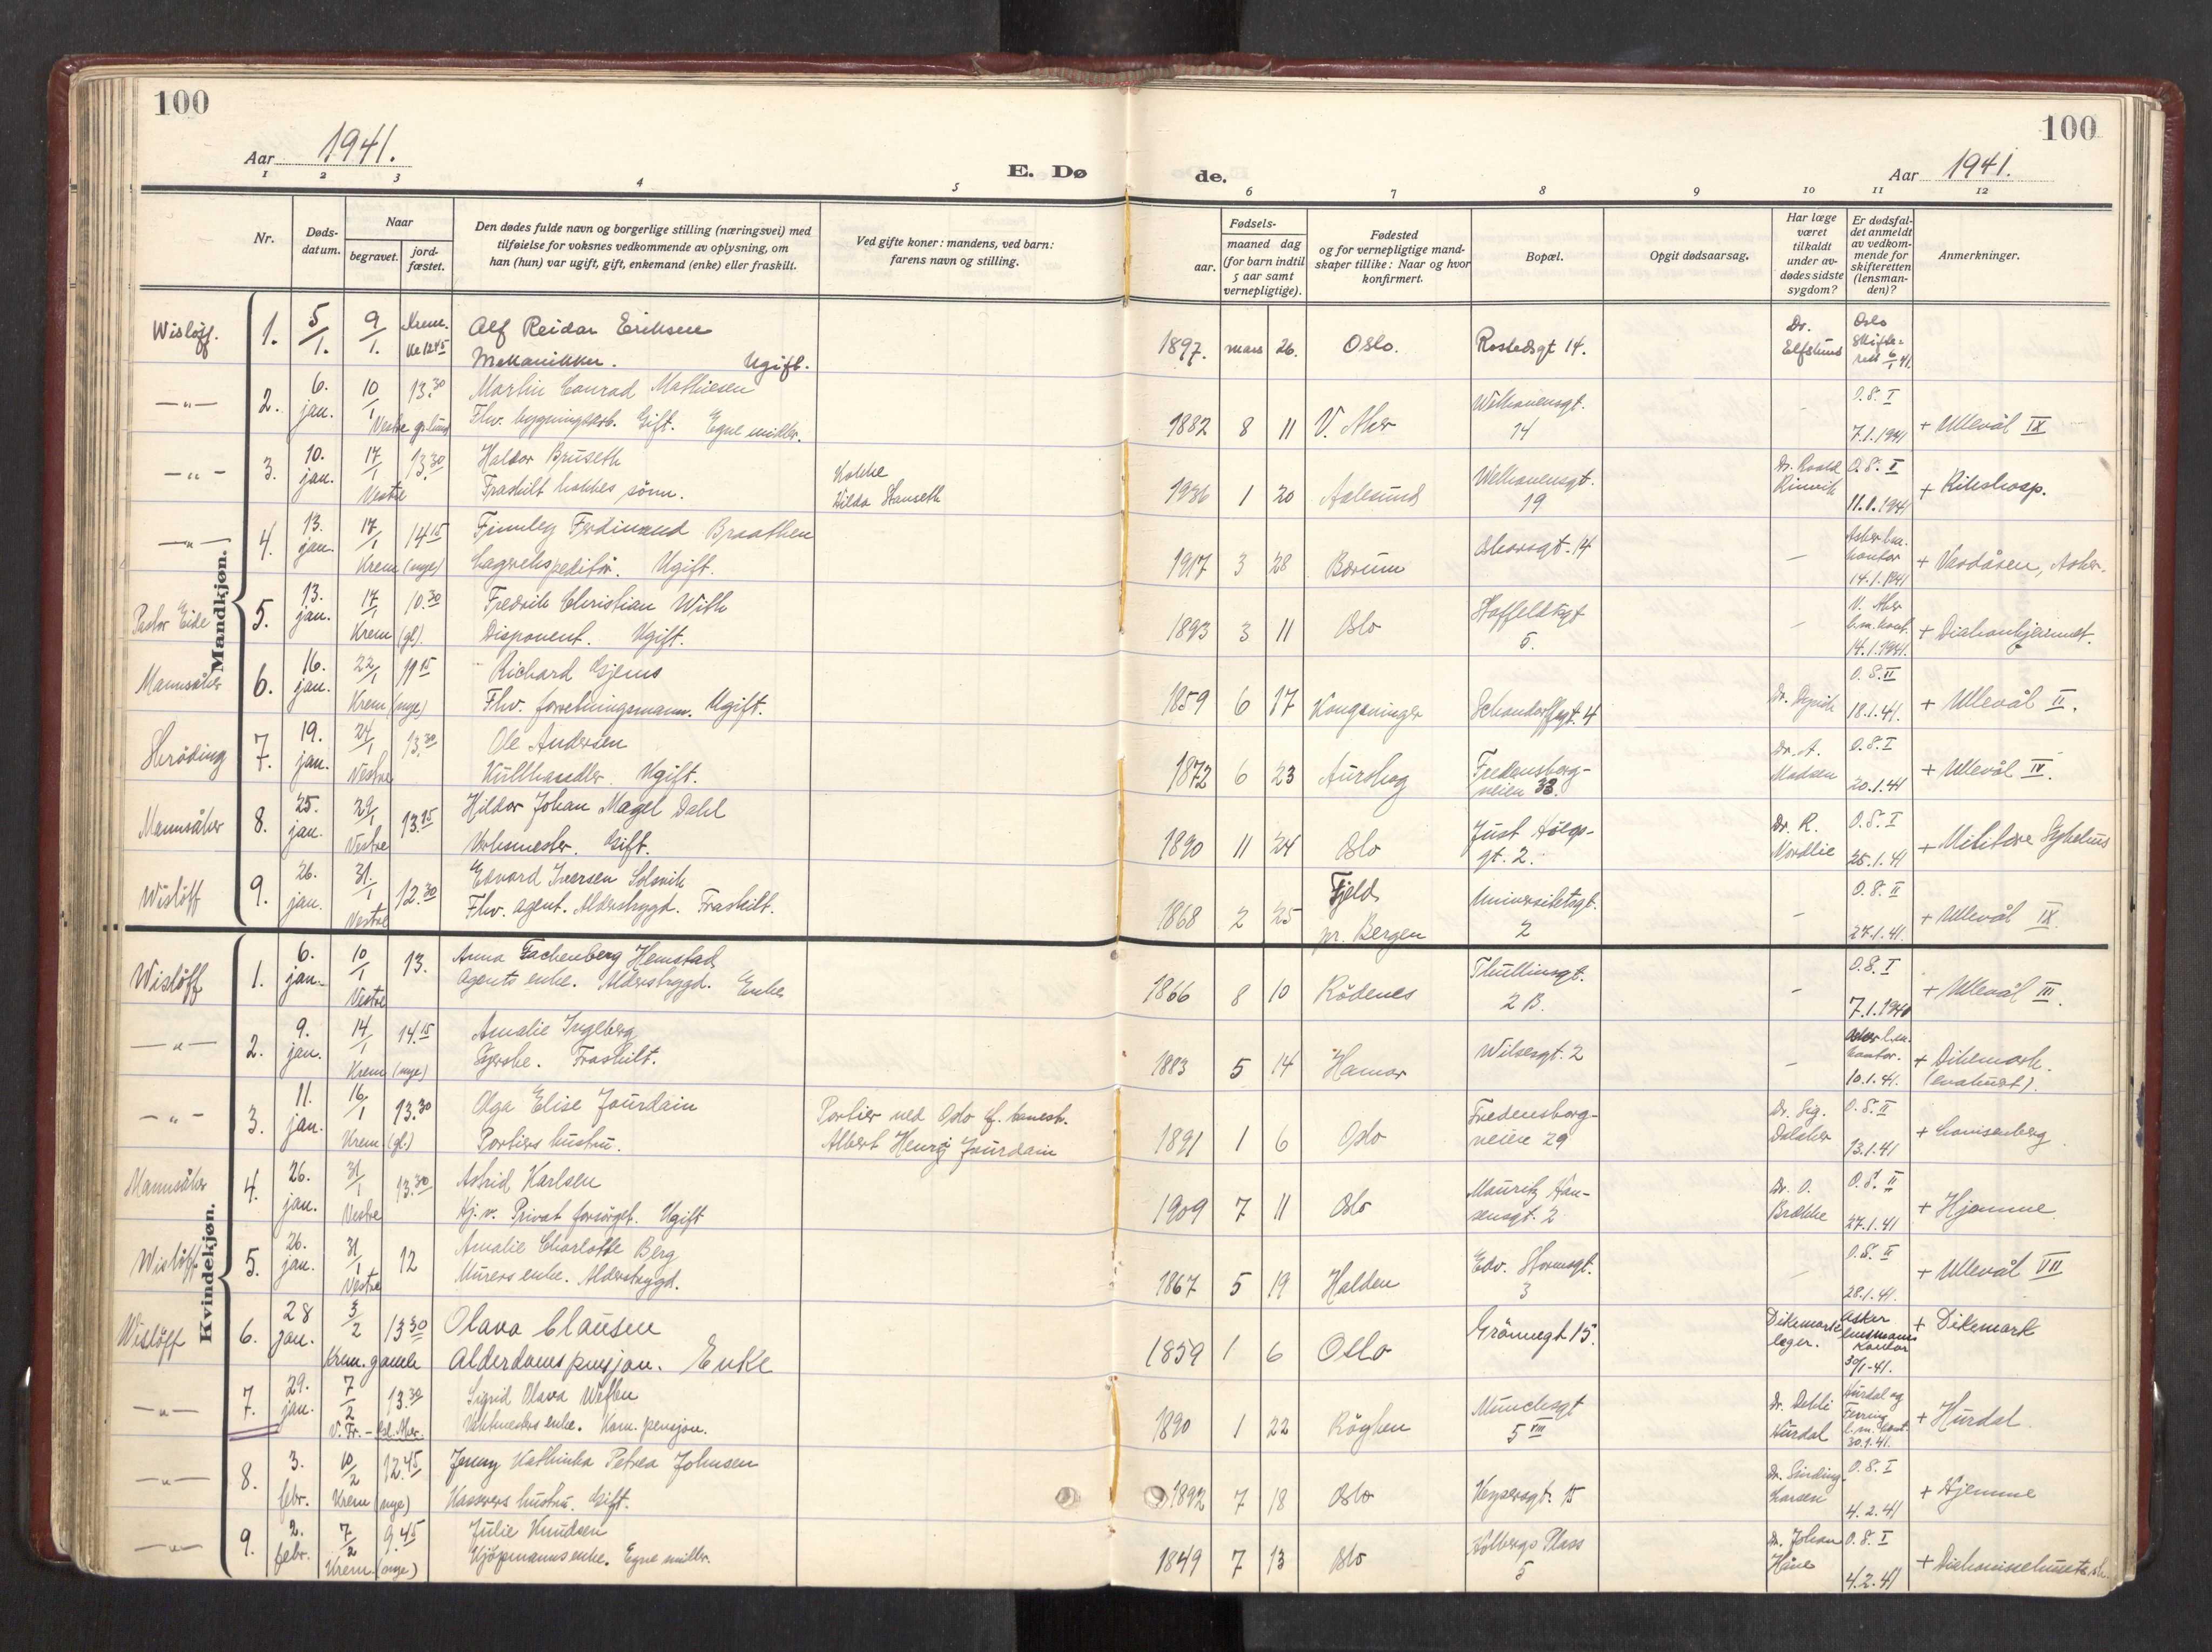 100
100
Aar 1941.
E. Dø
de.
Aar 1941.
1 2 3 4 5 6 7 8 9 10 11 12
Nr.
Døds-
datum.
Naar
begravet.
jord-
fæstet.
Den dødes fulde navn og borgerlige stilling (næringsvei) med
tilføielse for voksnes vedkommende av oplysning, om
han (hun) var ugift, gift, enkemand (enke) eller fraskilt.
Ved gifte koner: mandens, ved barn:
farens navn og stilling.
Fødsels-
aar.
maaned dag
(for barn indtil
5 aar samt
vernepligtige).
Fødested
og for vernepligtige mand-
skaper tillike: Naar og hvor
konfirmert.
Bopæl.
Opgit dødsaarsag.
Har læge
været
tilkaldt
under av-
dødes sidste
sygdom?
Er dødsfal-
det anmeldt
av vedkom-
mende for
skifteretten
(lensman-
den)?
Anmerkninger.
Mandkjøn.
Wisløff. 1. 5/1. 9/1. Krem. kl 12 45 Alf Reidar Eriksen
Mekaniker. Ugift.
1897. mars 26. Oslo. Rostedsgt 14. Dr. Oslo Skifterett 6/1 41.
-"- 2. 6. jan. 10/1 13.30 Martin Conrad Mathiesen
Vestre gr.lund Fhv. bygningsarb. Gift. Egne midler.
1882 8 11 V. Aker Welhavensgt. 14 - O.S. I 7.1.1941 + Ullevål IX
-"- 3. 10. jan. 17/1 13.30 Haldor Bruseth
Vestre Fraskilt kokkes sønn.
Kokke
Hilda Hanseth
1936 1 20 Aalesund Welhavensgt. 19 Dr. Roald Rinvik O.S. I 11.1.1941 + Rikshosp.
-"- 4. 13. jan. 17/1 14 15 Finnley Ferdinand Braathen
Krem (nye) Lagerekspeditør. Ugift.
1917 3 28 Bærum 14 - Asker l.m. kontor 14.1.1941 + Vardåsen, Asker.
Pastor Eide 5. 13. jan. 17/1 10.30 Fredrik Christian With
Krem (gl). Disponent. Ugift.
1893 3 11 Oslo 5. - V. Aker l.m. kont. 14.1.1941. + Diakonhjemmet.
Mannsåker 6. 16. jan. 22/1 11 15 Richard Gjems
Krem (nye) Fhv. forretningsmann. Ugift.
1859 6 17 Kongsvinger Schandorffsgt. 4 O.S. II 18.1.41. + Ullevål II.
Skrøding 7. 19. jan. 24/1 13.30 Ole Andersen
Vestre Kullhandler. Ugift.
1872 6 23 Aurskog Fredensborg-
veien 33. Dr. A. Madsen O.S. I 20.1.41 + Ullevål IV.
Mannsåker 8. 25. jan. 29/1 13.15 Hildor Johan Magel Dahl
Vestre Verksmester. Gift.
1890 11 24 Oslo Just
gt. 2. Dr. R. Nordlie O.S. I 25.1.41 + Militære Sykehus
Wisløff 9. 26. jan. 31/1 12.30 Edvard Iversen Solsvik
Vestre Fhv. agent. Alderstrygd. Fraskilt.
1868 2 25 Fjeld
pr. Bergen Universitetsgt. 2 - O.S. II 27.1.41. + Ullevål IX.
Kvindekjøn.
Wisløff 1. 6. jan. 10/1 13. Anna Fachenberg Hemstad
Vestre Agents enke. Alderstrygd. Enke
1866 8 10 Rødenes Thullinsgt. 2 B. - O.S. I 7.1.1941 + Ullevål III.
-"- 2. 9. jan. 14/1 14.15 Amalie Ingeberg
Krem (nye) Syerske. Fraskilt.
1883 5 14 Hamar Wilsesgt. 2 - Asker l.m. kontor. 10.1.41. + Dikemark.
(evakuert).
-"- 3. 11. jan. 16/1 13.30 Olga Elise Jourdain
Krem. (gl) Portiers hustru.
Portier ved Oslo
Albert Henry Jourdain
1891 1 6 Oslo Fredensborg-
veien 29 Dr. Sig. Dalaker O.S. II 13.1.41 + Lovisenberg.
Mannsåker 4. 26. jan. 31/1 13.30 Astrid Karlsen
Vestre Hj.v. Privat forsørget. Ugift
1909 7 11 Oslo Mauritz Han-
sensgt. 2 Dr. O. Brække O.S. II 27.1.41 + Hjemme.
Wisløff 5. 26. jan. 31/1 12 Amalie Charlotte Berg
Vestre Murers enke. Alderstrygd.
1867 5 19 Halden Edv. Stormsgt. 3 - O.S. II 28.1.41. + Ullevål VII
Wisløff 6. 28 jan. 3/2 13 30 Olava Clausen
Krem. gamle Alderdomspensjon. Enke
1859 1 6 Oslo Grønnegt 15. Dikemarks læger. Asker lensmanns kontor 30/1-41. + Dikemark
-"- 7. 29. jan. 7/2 13.30 Sigrid Olava
V. Fr. - Vaktmesters enke. Kom. pensjon.
1890 1 22 Røyken Munchsgt 5 VIII Dr. Dehli Hurdal Hurdal og Feiring l.m. kont. 30.1.41. + Hurdal.
-"- 8. 3. febr. 10/2 12.45 Jenny Kathinka Petrea Johnsen
Krem (nye) Kasserers hustru. Gift.
1892 7 18 Oslo Keysersgt. 15 Dr. Sinding-Larsen O.S. I 4.2.41 + Hjemme
-"- 9. 2. febr. 7/2 9.45 Julie Knudsen
Krem. (nye) Kjøpmanns enke. Egne midler.
1849 7 13 Oslo Holbergs Plass 5 Dr. Johan O.S. I 4.2.41 + Diakonissehusets sh.